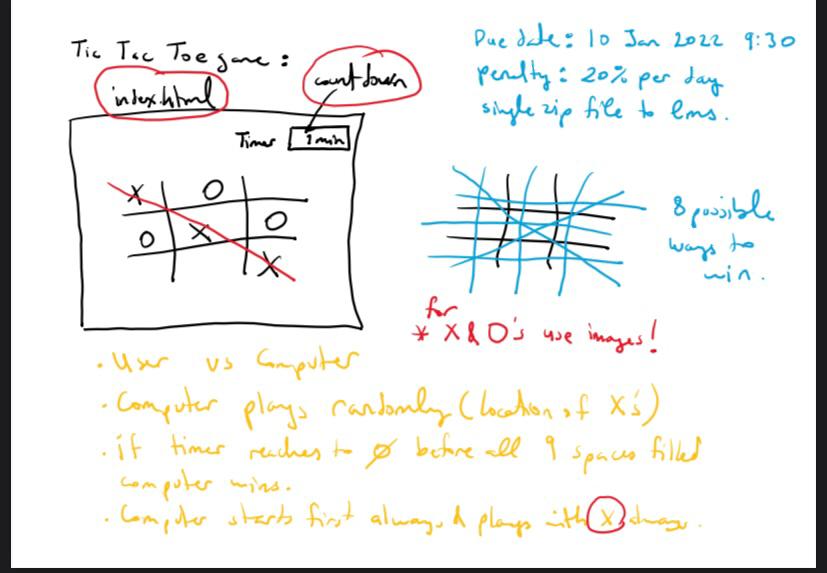 Tic Tac Toe game :
index.html
countdown
Timer 1 min
X O
O X O
X
Due date : 10 Jan 2022 9:30
penalty : 20% per day
single zip file to lms.
8 possible
ways to
win.
for
* X & O's use images!
• User vs Computer
• Computer plays randomly (location of X's)
• if timer reaches to 0 before all 9 spaces filled
computer wins.
• Computer starts first always & plays with X always.